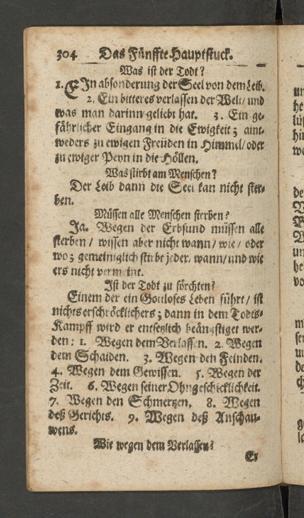 304 Das Fünffte Hauptstuck.
Was ist der Todt?
1. Ein absonderung der Seel von dem Leib.
2. Ein bitteres verlassen der Welt / und
was man darinn geliebt hat. 3. Ein ge-
fährlicher Eingang in die Ewigkeit; aint-
weders zu ewigen Freuden in Himmel / oder
zu ewiger Peyn in die Höllen.
Was stirbt am Menschen?
Der Leib dann die Seel kan nicht ster-
ben.
Müssen alle Menschen sterben?
Ja. Wegen der Erbsund müssen alle
sterben / wissen aber nicht wann / wie / oder
wo; gemeiniglich stirbt jeder. wann / und wie
ers nicht vermeint.
Ist der Todt zu förchten?
Einem der ein Gottloses Leben führt / ist
nichts erschröcklichers; dann in dem Todts-
Kampff wird er entsetzlich beängstiget wer-
den: 1. Wegen dem Verlassen. 2. Wegen
dem Schaiden. 3. Wegen den Feinden.
4. Wegen dem Gewissen. 5. Wegen der
Zeit. 6. Wegen seiner Ohngeschicklichkeit.
7. Wegen den Schmertzen. 8. Wegen
deß Gerichts. 9. Wegen deß Anschau-
wens.
Wie wegen dem Verlassen?
Er